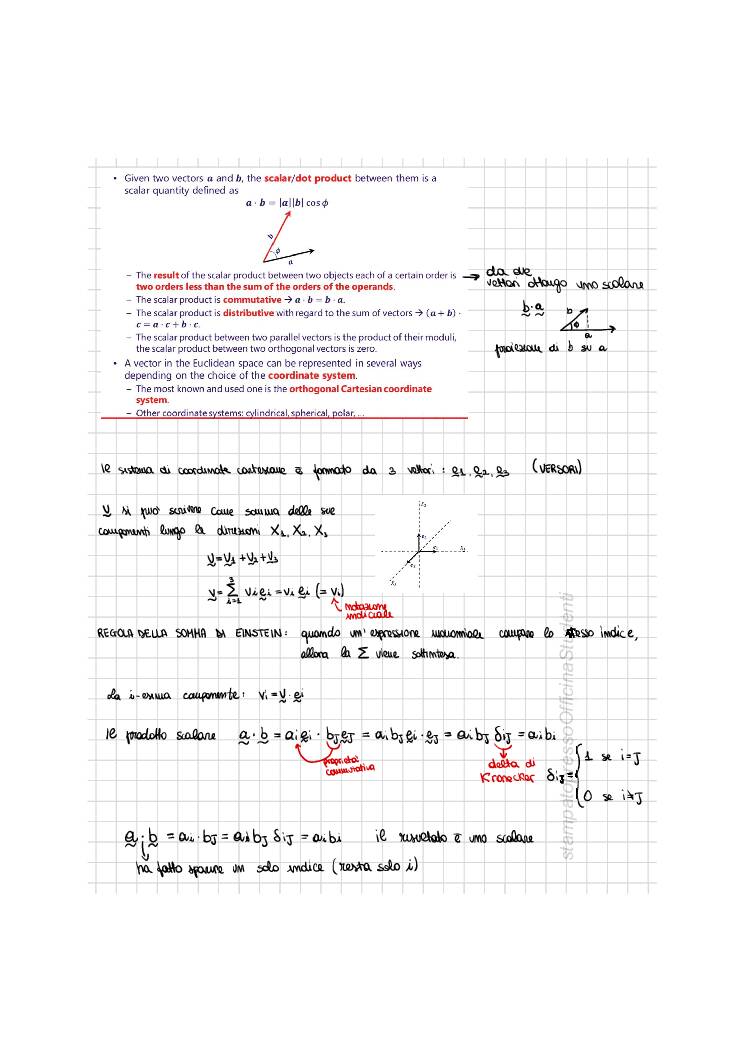 • Given two vectors a and b, the scalar/dot product between them is a
scalar quantity defined as
a · b = |a||b| cos ϕ
b
ϕ
a
– The result of the scalar product between two objects each of a certain order is
two orders less than the sum of the orders of the operands.
– The scalar product is commutative → a · b = b · a.
– The scalar product is distributive with regard to the sum of vectors → (a + b) ·
c = a · c + b · c.
– The scalar product between two parallel vectors is the product of their moduli,
the scalar product between two orthogonal vectors is zero.
• A vector in the Euclidean space can be represented in several ways
depending on the choice of the coordinate system.
– The most known and used one is the orthogonal Cartesian coordinate
system.
– Other coordinate systems: cylindrical, spherical, polar, ...
→ da due
vettori ottengo uno scalare
b · a
b
ϕ
a
proiezione di b su a
il sistema di coordinate cartesiane è formato da 3 vettori: e1, e2, e3 (VERSORI)
v si può scrivere come somma delle sue
componenti lungo le direzioni X1, X2, X3
v = v1 + v2 + v3
v = Σ i=1 3 vi ei = vi ei (= vi)
notazione
indiciale
REGOLA DELLA SOMMA DI EINSTEIN: quando un'espressione monomiale compare lo stesso indice,
allora la Σ viene sottintesa.
La i-esima componente: vi = v · ei
il prodotto scalare a · b = ai ei · bJ eJ = ai bJ ei · eJ = ai bJ δiJ = ai bi
proprietà
commutativa
delta di
Kronecker
δiJ = { 1 se i = J
0 se i ≠ J
a · b = ai · bJ = ai bJ δiJ = ai bi il risultato è uno scalare
ha fatto sparire un solo indice (resta solo i)
stampatopressoOfficinaStudenti